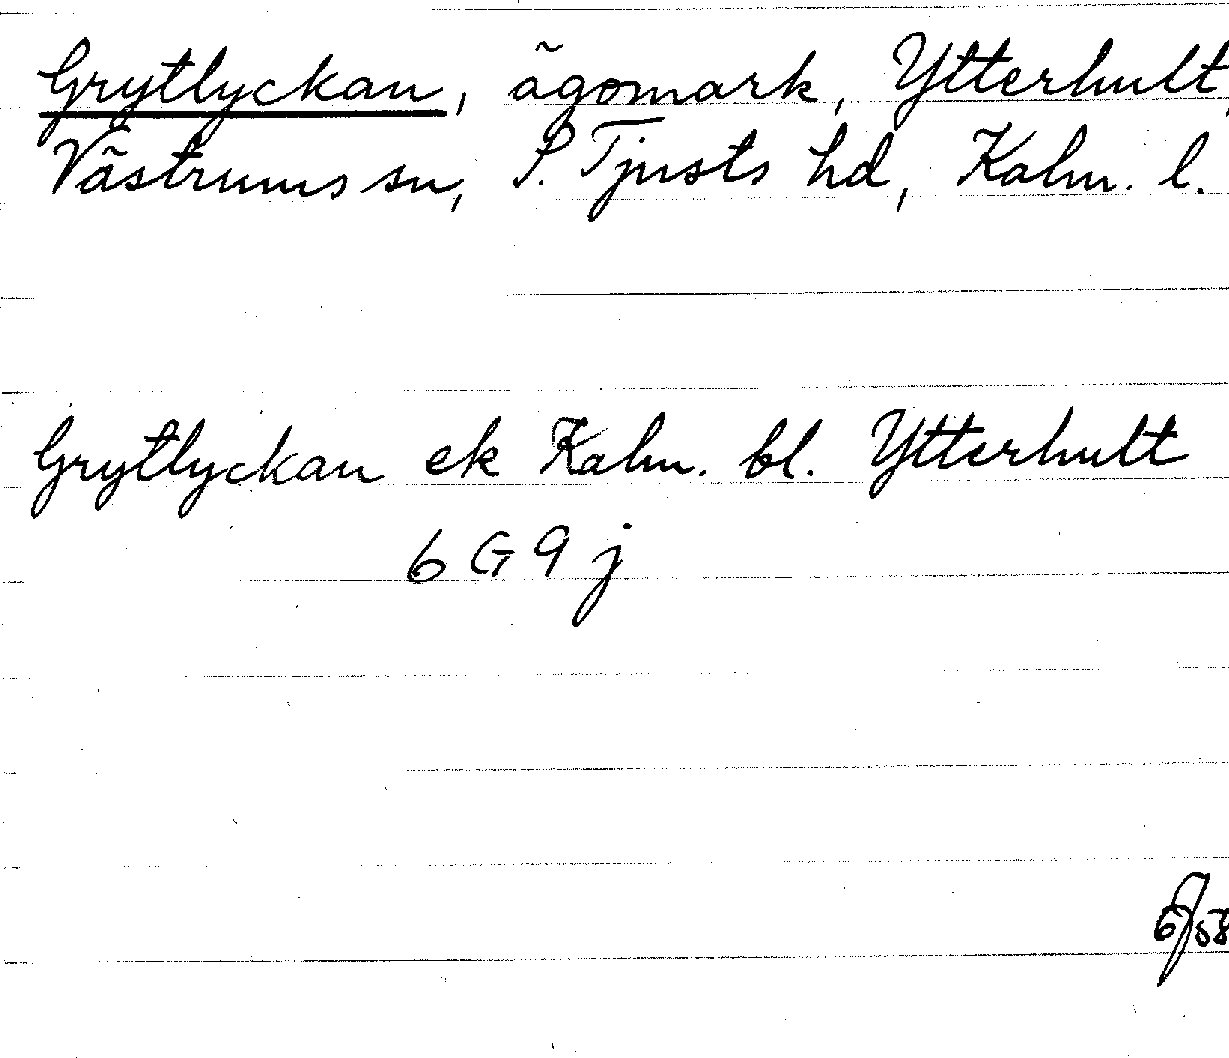 Grytlyckan, ägomark, Ytterhult,
Västrums sn, S. Tjusts hd, Kalm. l.
Grytlyckan ek Kalm. bl. Ytterhult
6 G 9 j